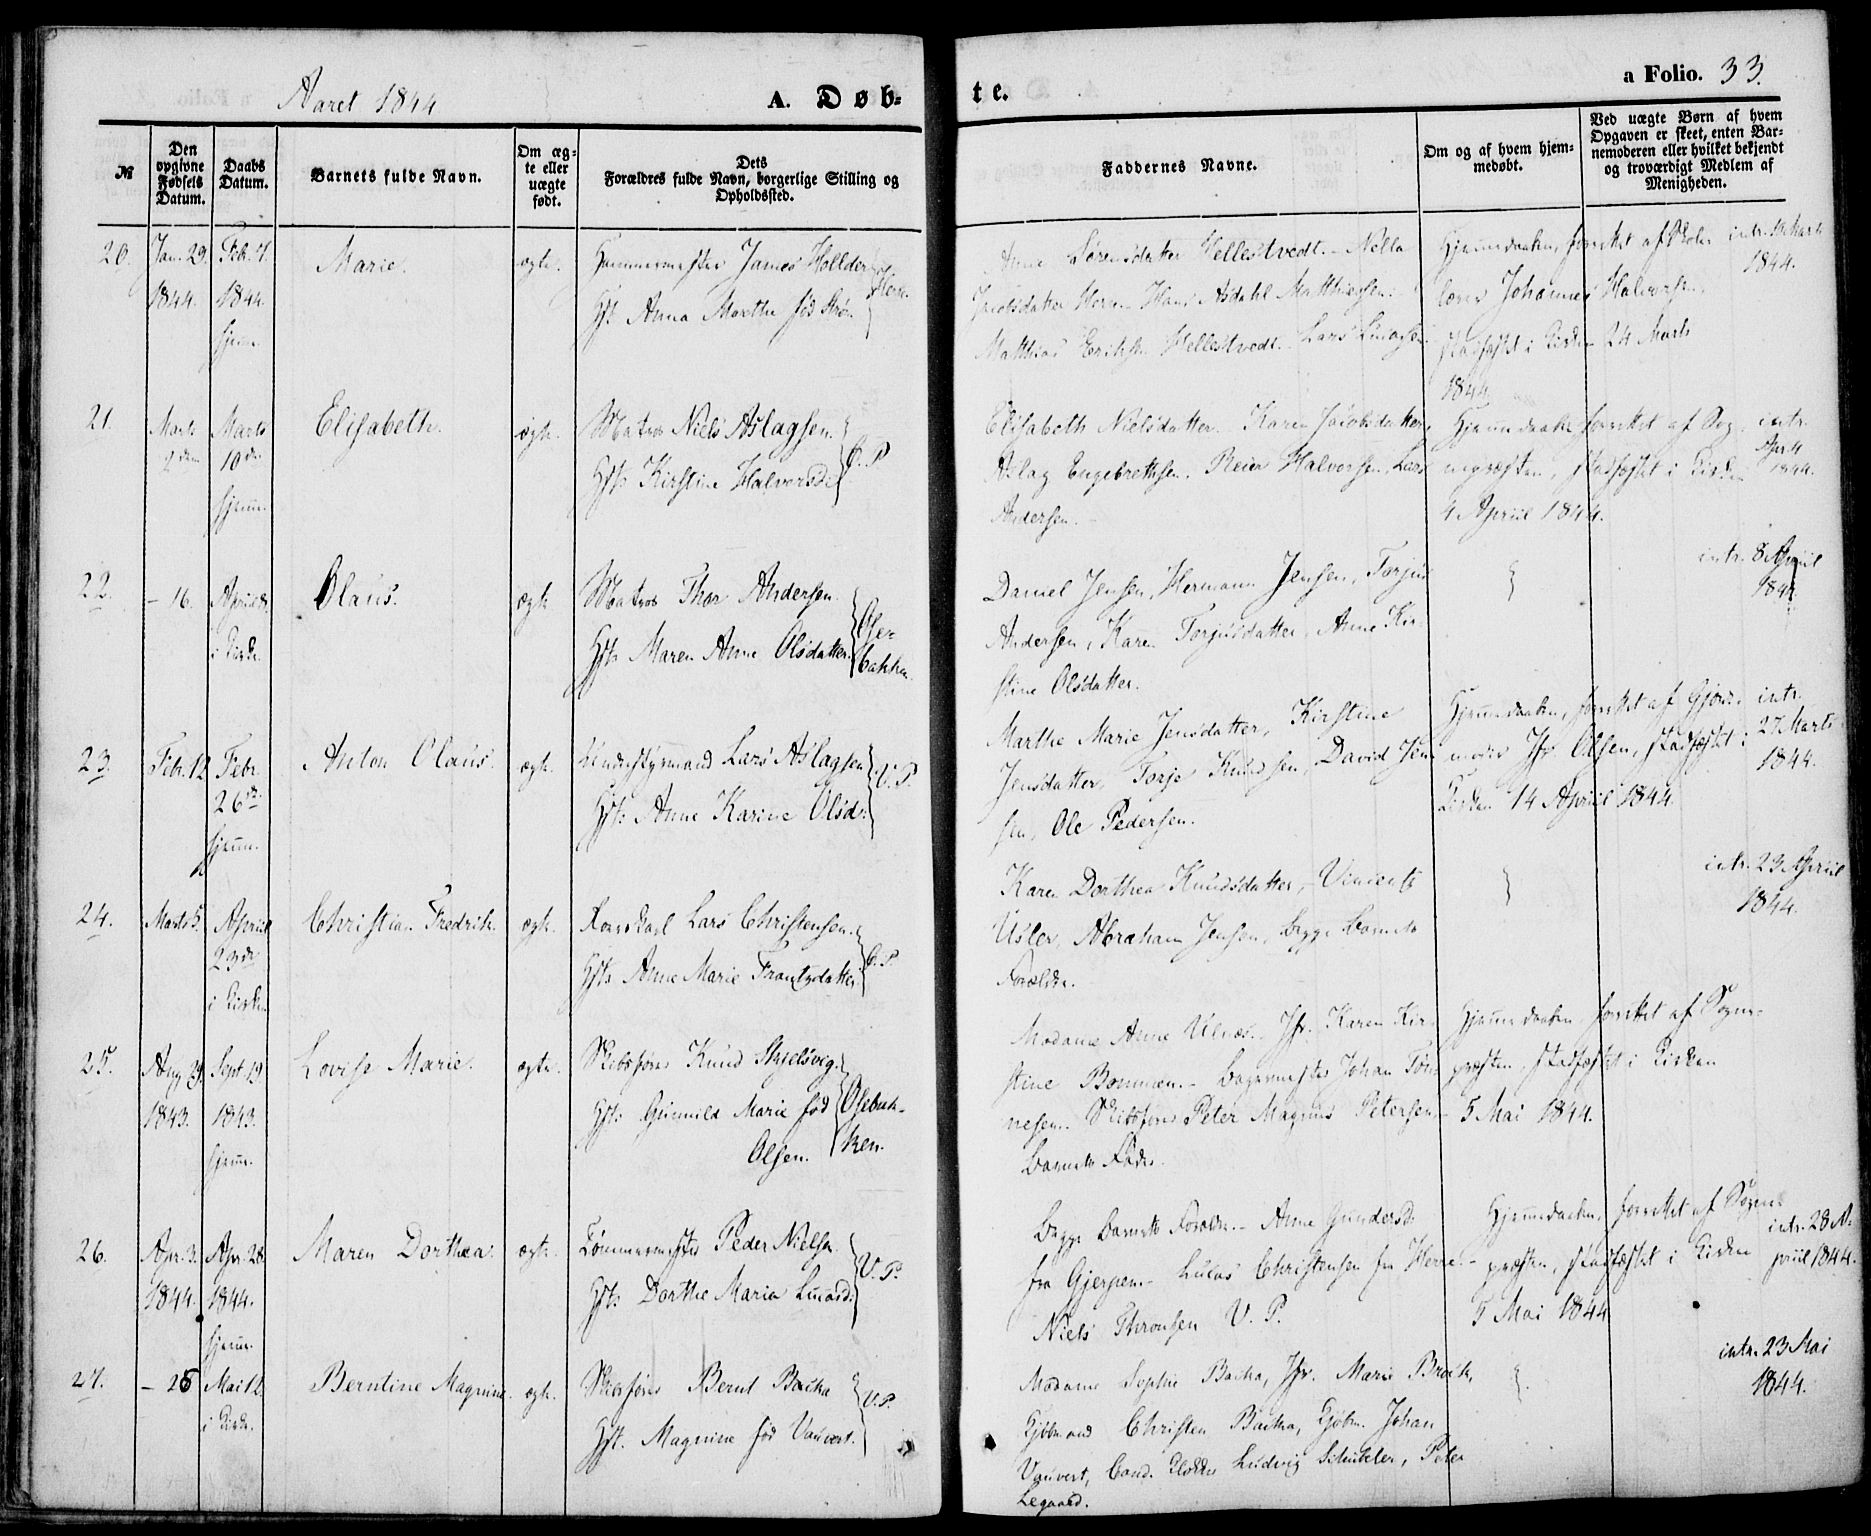 Aaret 1844
A. Døb-
te.
a Folio. 33.
№
Den opgivne Fødsels Datum.
Daabs Datum.
Barnets fulde Navn.
Om ægte eller uægte født.
Dets Forældres fulde Navn, borgerlige Stilling og Opholdssted.
Faddernes Navne.
Om og af hvem hjemmedøbt.
Ved uægte Børn af hvem Opgaven er skeet, enten Barnemoderen eller hvilket bekjendt og troværdigt Medlem af Menigheden.
20.
Jan. 29.
1844.
Feb. 7.
1844
hjem.
Marie.
ægte.
Hammermester James Hollder
Hst. Anna Marthe fød
Anne Sørensdatter Hellestvedt. Nella
Jacobsdatter Herre. Hans Asdahl Matthiesen.
Matthias Eriksen Hellestvedt. Lars Lucassen.
Hjemmedaaben forrettet af Skole-
lærer Johannes Halvorsen,
stadfæstet i Kirken 24 Marts
1844.
1844.
21.
Marts
Marts
10de
hjem.
Elisabeth.
ægte.
Matros Niels Aslagsen.
Hst. Kirstine Halvorsd.
Elisabeth Nielsdatter. Karen Jacobsdatter,
Aslag Engebrethsen. Reier Halvorsen, Lars
Andersen.
Hjemmedaaben forrettet af Sog-
nepræsten, stadfæstet i Kirken
4 Apriil 1844.
intr.
April
1844.
22.
- 16.
i Kirke.
Olaus.
ægte
Matros Thor Andersen.
Hst. Maren Anne Olsdatter.
Ose-
bakken.
Daniel Jensen, Hermann Jensen, Torjus
Andersen, Karen Torjusdatter, Anne Kir-
stine Olsdatter.
intr. 8 Apriil
1844.
23.
Febr. 12
Febr.
26de
hjem.
Anton Olaus.
ægte.
Understyrmand Lars Aslagsen
Hst. Anne Karine Olsd.
V. P.
Marthe Marie Jensdatter, Kirstine
Jensdatter, Torje Knudsen, David Jen-
sen, Ole Pedersen.
Hjemmedaaben, forrettet af Gjorde-
moder Jfr. Olsen, stadfæstet i
Kirken 14 Apriil 1844.
intr.
27 Marts
1844.
24.
Marts 5.
Apriil
23de
i Kirken
Christian Fredrik.
ægte.
Lars Christensen.
Hst. Anne Marie Frantzdatter.
Karen Dorthea Knudsdatter, Vincents
Usler, Abraham Jensen, begge Barnets
Forældre.
intr. 23 Apriil
1844.
25.
Aug. 29.
1843.
Sept. 19.
1843.
hjem.
Lovise Marie.
ægte.
Skibsfører Knud Skjelsvig.
Hst. Gunnild Marie fød
Olsen.
Osebak-
ken.
Madame Anne Ulnæs. Jfr. Karen Kir-
stine Bommen. Bagermester Johan Tøn-
nesen. Skibsfører Peter Magnus Petersen.
Barnets Fader.
Hjemmedaaben forrettet af Sogne-
præsten, stadfæstet i Kirken
5 Mai 1844.
26.
Apr. 3.
1844.
Apr. 28.
1844.
hjem.
Maren Dorthea.
ægte.
Tømmermester Peder Nielsen.
Hst. Dorthe Maria Lucasd.
V. P.
Begge Barnets Forældre. Anne Gundersd.
fra Gjerpen. Lucas Christensen fra Herre.
Niels Thronsen V. P.
Hjemmedaaben, forrettet af Sogne-
præsten, stadfæstet i Kirken
5 Mai 1844
intr. 28 A-
priil 1844.
27.
- 26
Mai 12.
i Kirke.
Berntine Magnine.
ægte.
Skibsfører Bernt Bacha
Hst. Magnine fød Vauvert.
V. P.
Madame Sophie Bacha, Jfr. Marie Broch,
Kjøbmand Christen Bacha, Kjøbm. Johan
Vauvert, Cand. Ludvig Schickler, Peter
Legaard.
intr. 23 Mai
1844.